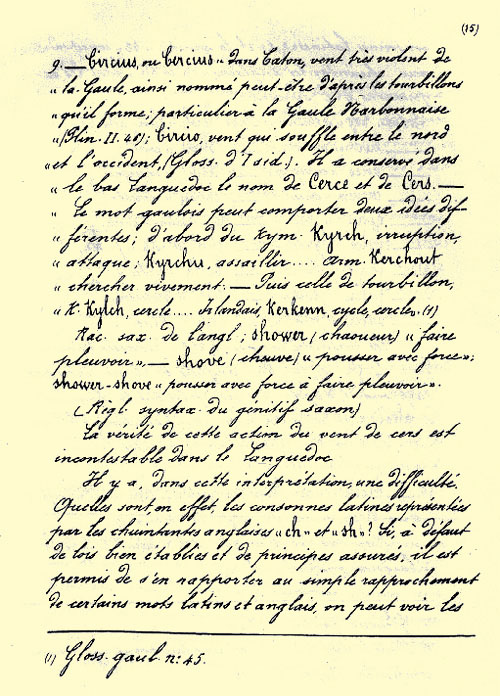 (15)
9. — Circius, ou Cercius « dans Caton, vent très violent de
« la Gaule, ainsi nommé peut-être d'après les tourbillons
« qu'il forme; particulier à la Gaule Narbonnaise
« (Plin. II. 46); Circio, vent qui souffle entre le nord
« et l'occident, (Gloss. d'Isid.). Il a conservé dans
« le bas Languedoc le nom de Cerce et de Cers. —
« Le mot gaulois peut comporter deux idées dif-
« férentes; d'abord du Kym. Kyrch, irruption,
« attaque; Kyrchu, assaillir.... Arm. Kerchout
« chercher vivement. — Puis celle de tourbillon,
« K. Kylch, cercle.... Irlandais, Kerkenn, cycle, cercle». (1)
Rac. sax. de l'angl; shower (chaoueur) « faire
pleuvoir», — shove (chouve) « pousser avec force»;
shower-shove « pousser avec force à faire pleuvoir».
(Règl. syntax. du génitif saxon)
La vérité de cette action du vent de cers est
incontestable dans le Languedoc
Il y a, dans cette interprétation, une difficulté.
Quelles sont, en effet, les consonnes latines représentées
par les chuintantes anglaises «ch» et «sh»? Si, à défaut
de lois bien établies et de principes assurés, il est
permis de s'en rapporter au simple rapprochement
de certains mots latins et anglais, on peut voir les
(1) Gloss. gaul. n: 45.